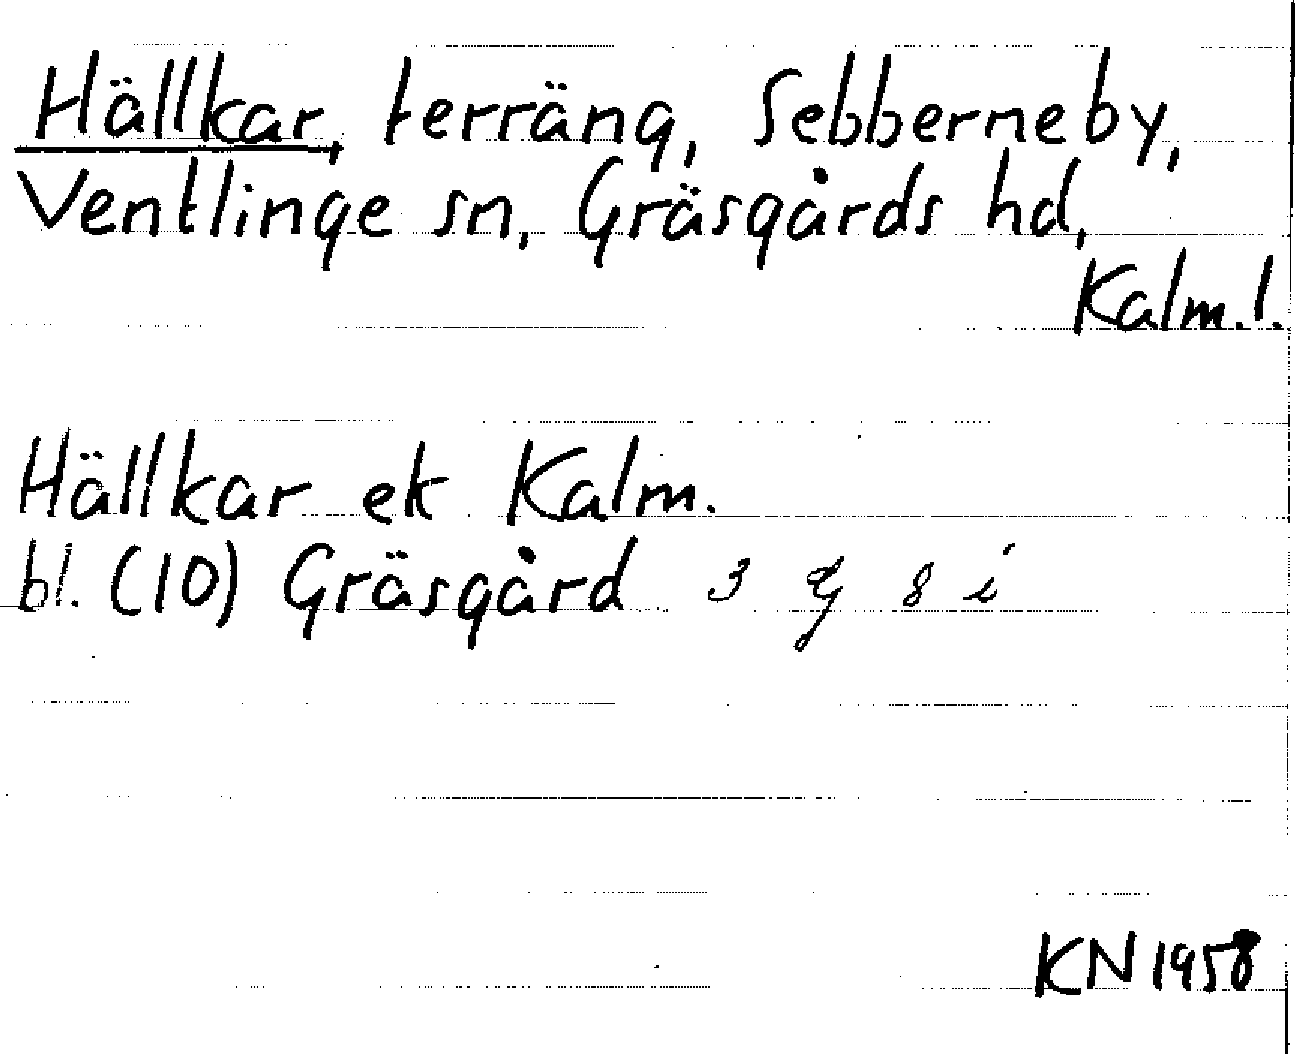 Hällkar, terräng, Sebberneby,
Ventlinge sn, Gräsgårds hd,
Kalm. l.
Hällkar ek Kalm.
bl. (10) Gräsgård 3 G 8 i
KN 1958